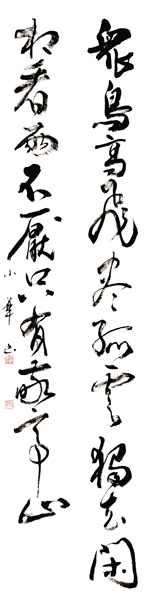 衆鳥高飛盡孤雲獨去閑
相看兩不厭只有敬亭山
小華山